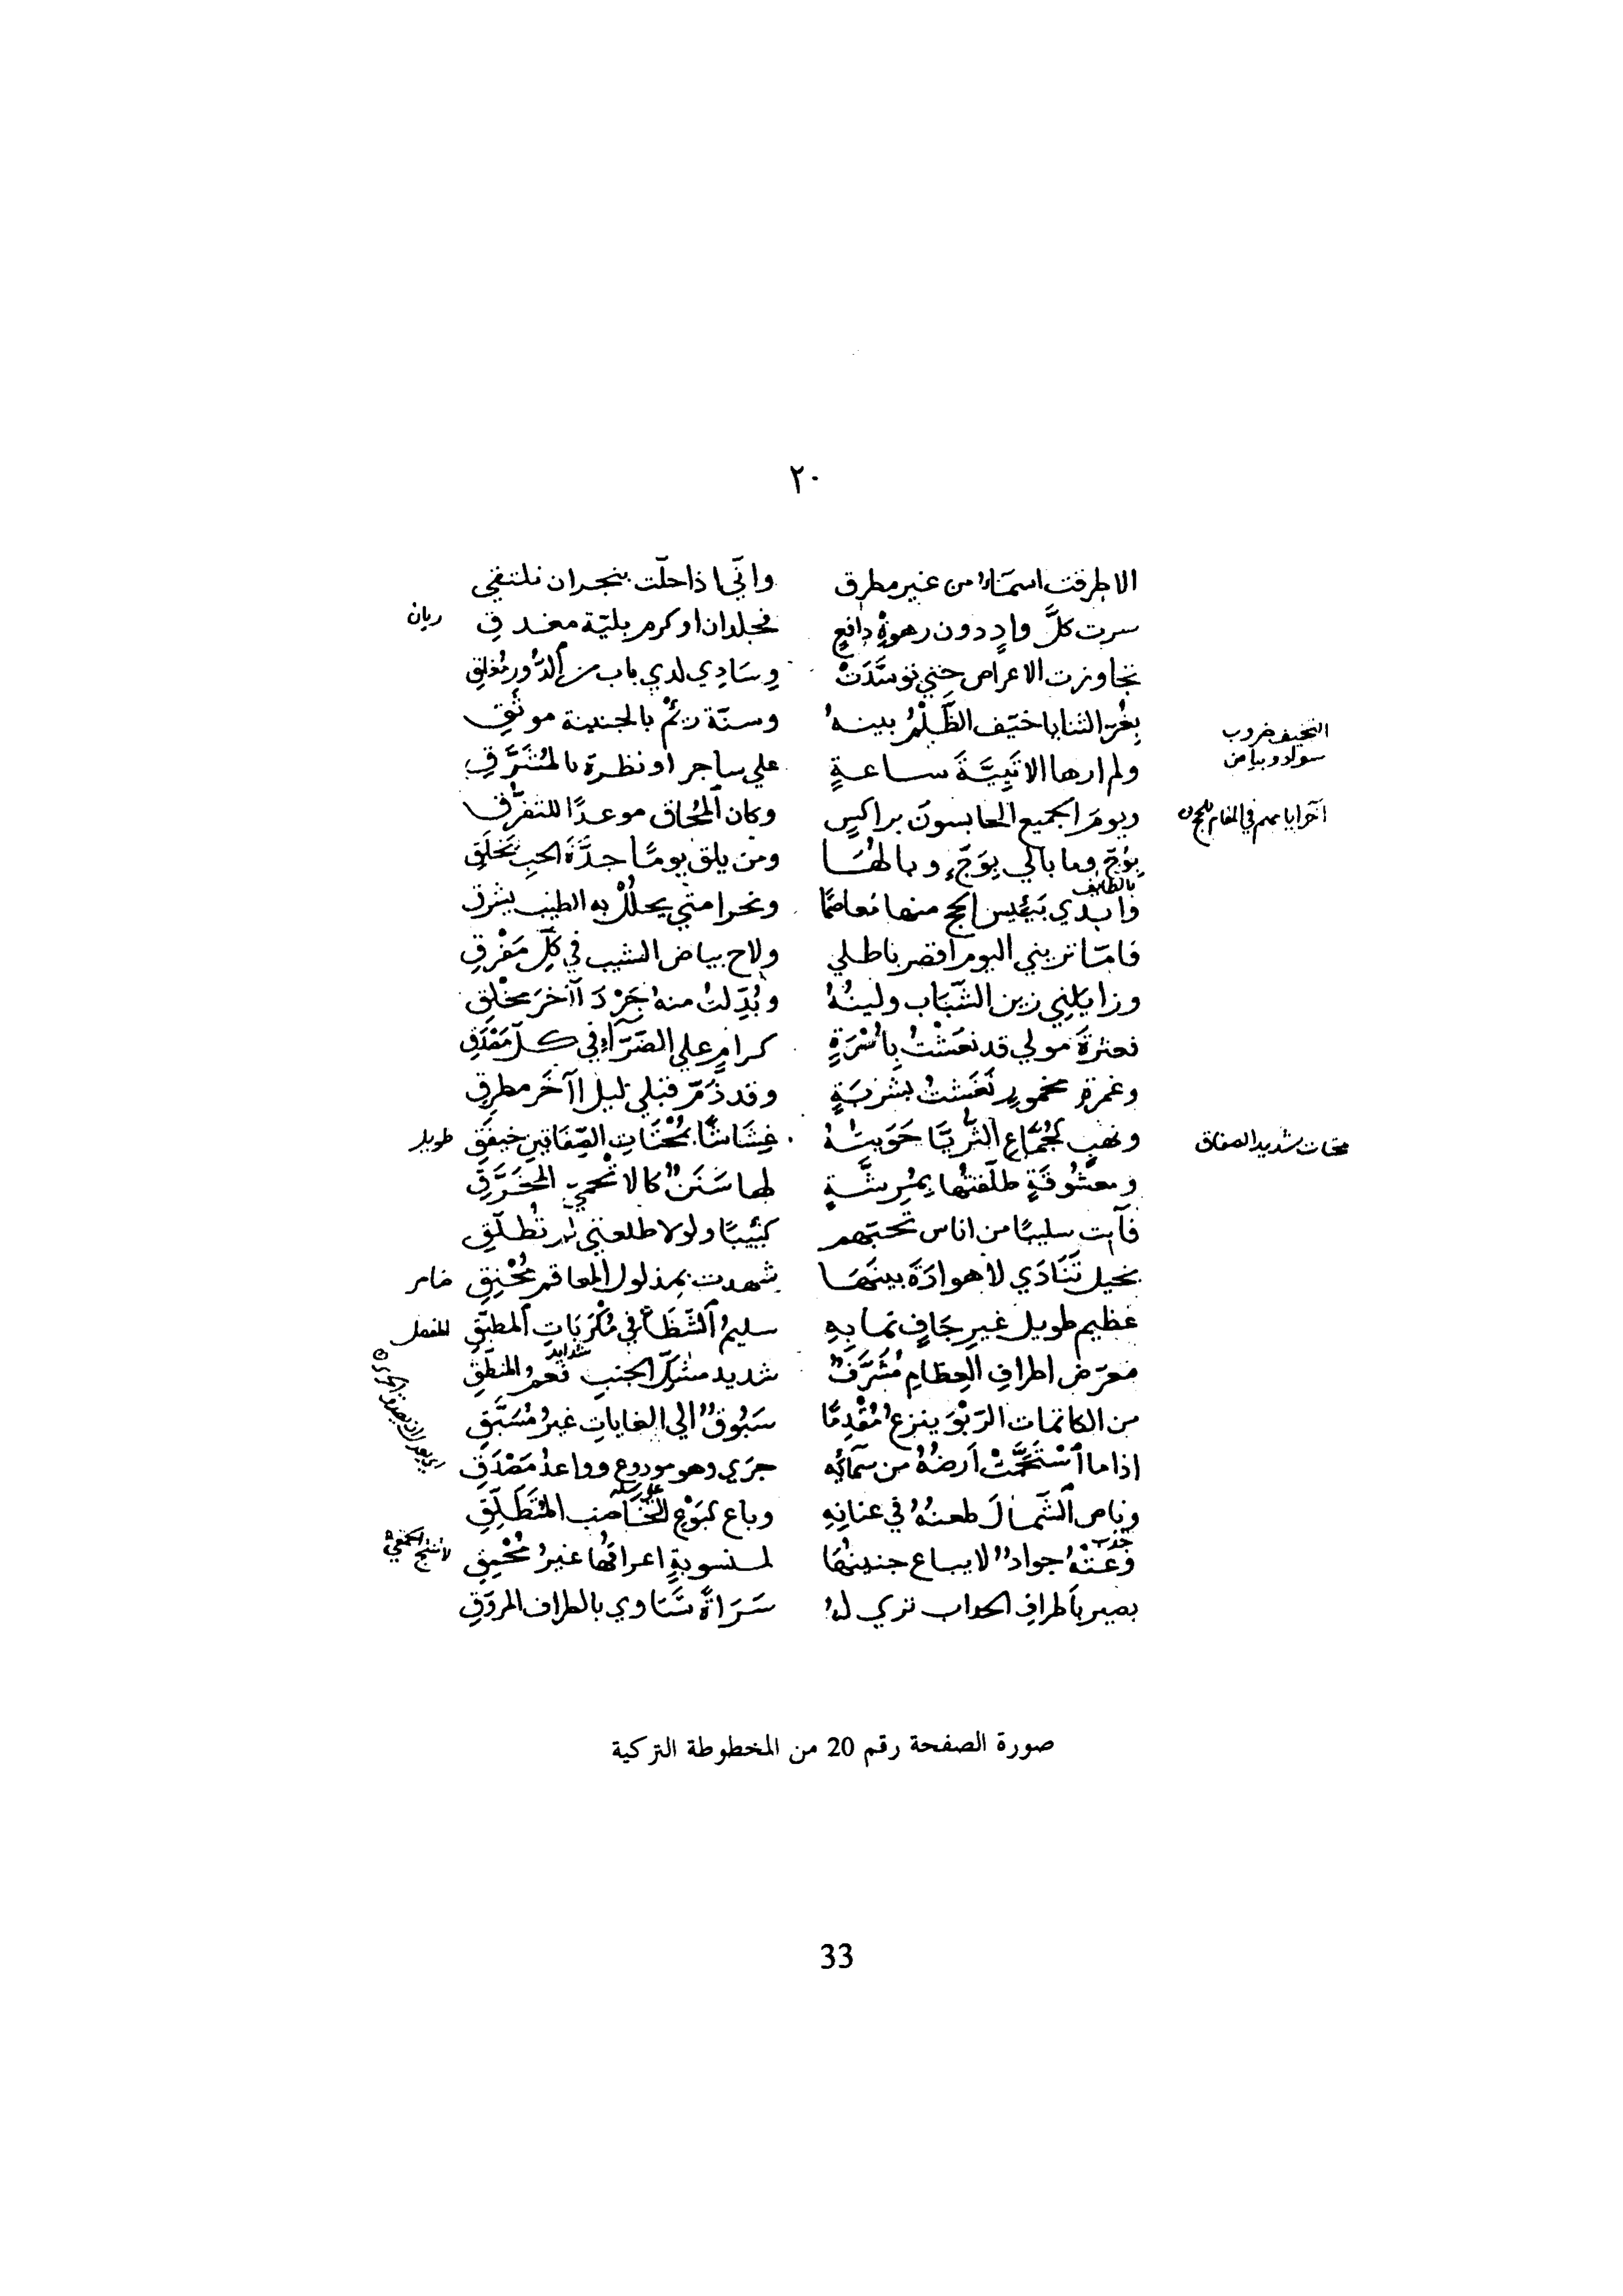 ٢٠
الا طرقت اسمَاءُ من غير مطرق واَنّي اذا حلّت بنجران نلتقي
سرت كلَّ وادٍ دون رهوةَ دافعٍ فجلدان او كرم بليّة مغدقِ ريان
تجاوزت الاعراض حتى توسَّدَتْ وِسَادِي لدي باب من اَلدُّورِ مُغلقِ
بِغُرّ الثنايا خيّف الظَّلْمُ بينهُ وسنّة رِئْمٍ بالجنينة موثَقِ
التخييف ضروب
سواد وبياض
ولم ارها الا تَئِيَّةَ ساعةٍ علي ساجر او نظرة بالمُشَرَّقِ
ويومَ الجميع الحابسونَ براكسٍ وكان اَلمُحَاق موعدًا للتفرُّق
بِوَجّ وما بالي بِوَجّ، وبالُهَا ومَن يلق يومًا جدَّةَ الحبِ تَخْلَقِ
بالطايف
وابدي بَئِيس الحج منها مُعاصمًا ونحرا متي يحلُلْ به الطيب يشرق
فامّا تريني اليوم اقصر باطلي ولاح بياض الشيب في كلِّ مَفْرقِ
وزايلني زين الشَّبَاب ولينُهُ وبُدِّلتُ منهُ جَرْدَ اآخَرَ مخْلِقِ
فعثرةَ مولي قد نعَشْتُ بِاُسْرَةٍ كرامٍ علي الضَرّآءِ في كلّ مَصْدَقِ
وغمرةِ مخمورٍ نَعَشتُ بشَربَةٍ وقد ذَمّ قبلي ليل اآخَر مطرِقِ
ونهبٍ كجُمّاعِ الثُّريَّا حَوَيتُهُ غِشَاشًا بمُحْتَاتِ الصِّفَاقينِ خيفَقِ طويل
محتات شديد الصفاق
ومعشُوقَةٍ طلّقتُها بمُرِشَّةٍ لها سَنَنٌ كالاَتْحمِيّ المُخَرَّقِ
فاَبت سليبًا من اناس تحبّهم كئيبًا ولولا طلعتي لم تُطلّقِ
بخيل تَنَادَي لا هوادَةَ بينَهَا شهدت بمذلول المعاقم مُحْنِقِ ضامر
عظيم طويل غيرِ جَافٍ نما بهِ سليمُ اَلشَّظَا في مُكْرَبَاتِ اَلمطبّقِ المفصل
مُعرّض اطرافِ العِظَامِ مُشَرَّفٌ شديد مشكّ الجنبِ فَعمِ المنطّقِ
من الكاتمات الرَبْوَ ينزع مُقْدِمًا سَبُوقٌ الي الغاياتِ غيرُ مُسَبَّقِ
اذا ما اَسْتَحَمَّتْ اَرضُهُ من سَمآئهِ جرَي وهو مودوع وواعدُ مَصْدَقِ
وناص الشِّمالَ طعنُهُ في عنانهِ وباع كبَوْعِ الخَاضب المُتَطَلِّقِ
وَعَتْهُ جواد لا يباع جنينُهَا لمنسوبةٍ اعراقُها غيرُ مُحْمِقِ
بصير باَطراف الحداب تري لهُ سَرَاةً تُسَاوي بالطراف المروّقِ
صورة الصفحة رقم 20 من المخطوطة التركية
33